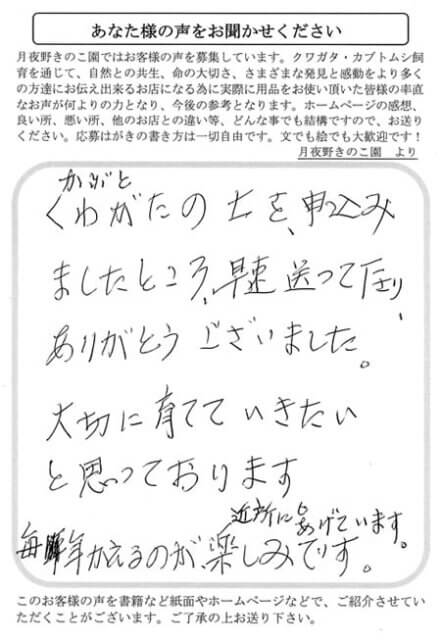 あなた様の声をお聞かせください
月夜野きのこ園ではお客様の声を募集しています。クワガタ・カブトムシ飼
育を通じて、自然との共生、命の大切さ、さまざまな発見と感動をより多く
の方達にお伝え出来るお店になる為に実際に用品をお使い頂いた皆様の率直
なお声が何よりの力となり、今後の参考となります。ホームページの感想、
良い所、悪い所、他のお店との違い等、どんな事でも結構ですので、お送り
ください。応募はがきの書き方は一切自由です。文でも絵でも大歓迎です！
月夜野きのこ園 より
かぶと
くわがたの土を、申込み
ましたところ、早速送って下り、
ありがとうございました。
大切に育てていきたい
と思っております
近所にもあげています。
毎年かえるのが、楽しみです。
このお客様の声を書籍など紙面やホームページなどで、ご紹介させてい
ただくことがございます。ご了承の上お送り下さい。